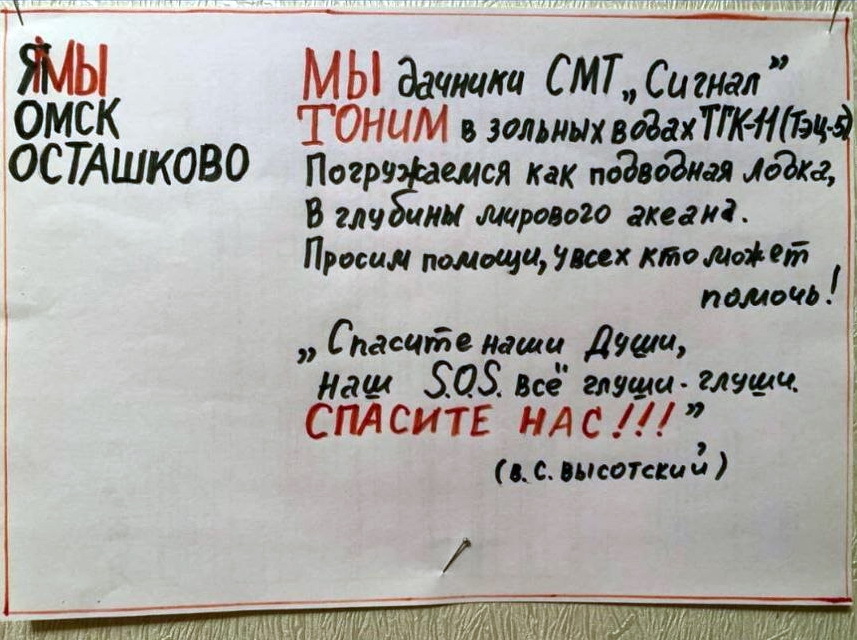 ЯМЫ
ОМСК
ОСТАШКОВО
МЫ дачники СМТ „Сигнал”
ТОНИМ в зольных водах ТГК-11 (Тэц-5)
Погружаемся как подводная лодка,
В глубины мирового акеана.
Просим помощи, у всех кто может
помочь!
„Спасите наши Души,
наш S.O.S. всё глуши - глуши.
СПАСИТЕ НАС!!!”
(В. С. ВЫСОТСКИЙ)